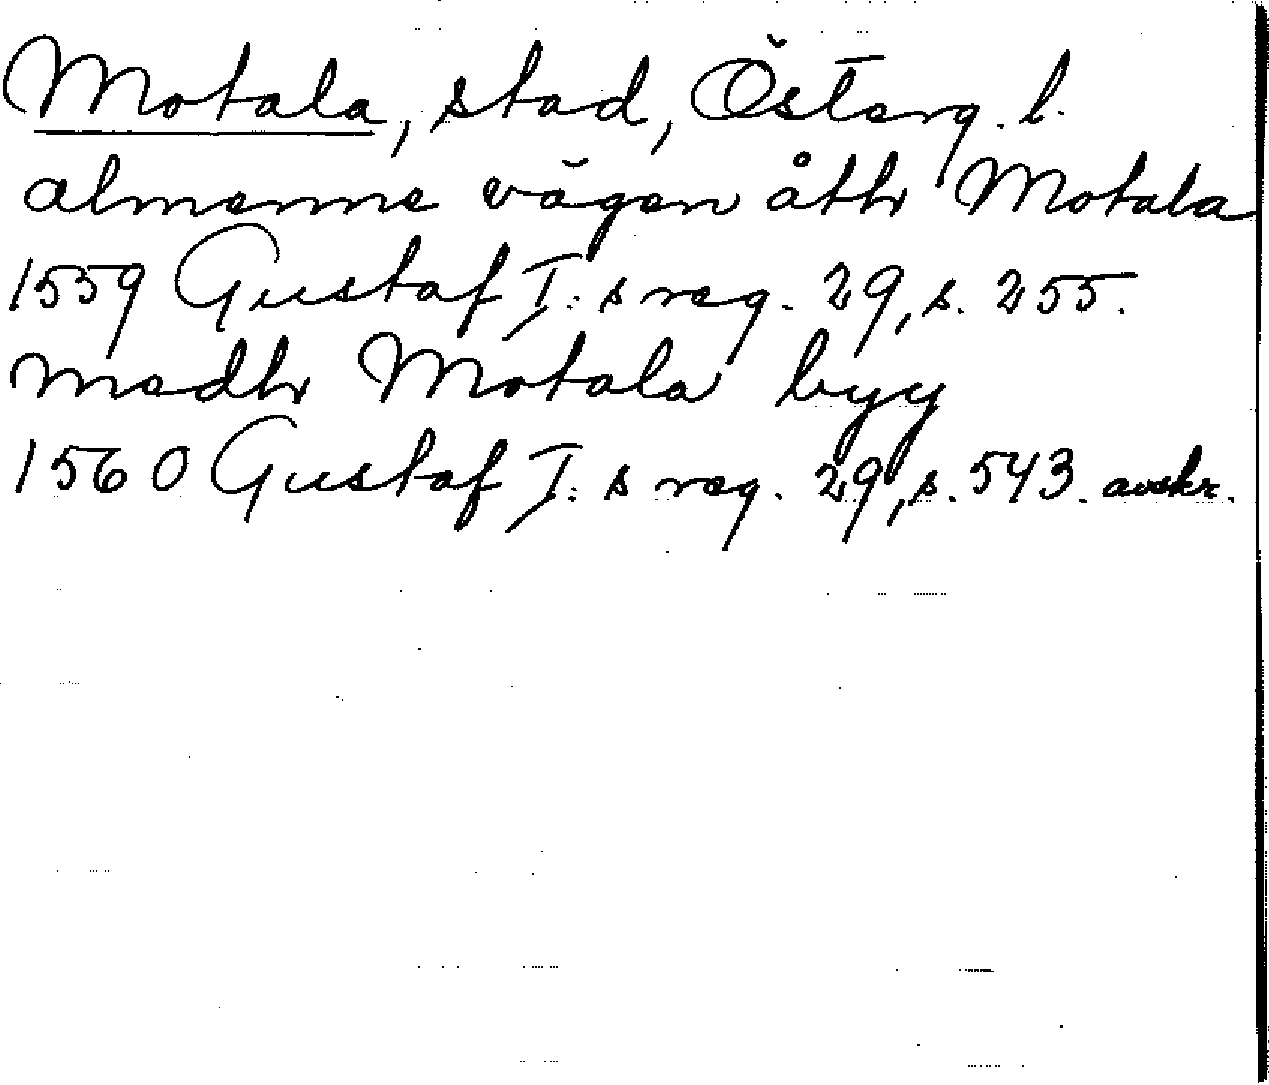 Motala, stad, Österg. l.
almenne vägen åth Motala
1559 Gustaf I:s reg. 29, s. 255.
medh Motala byy
1560 Gustaf I:s reg. 29, s. 543. avskr.